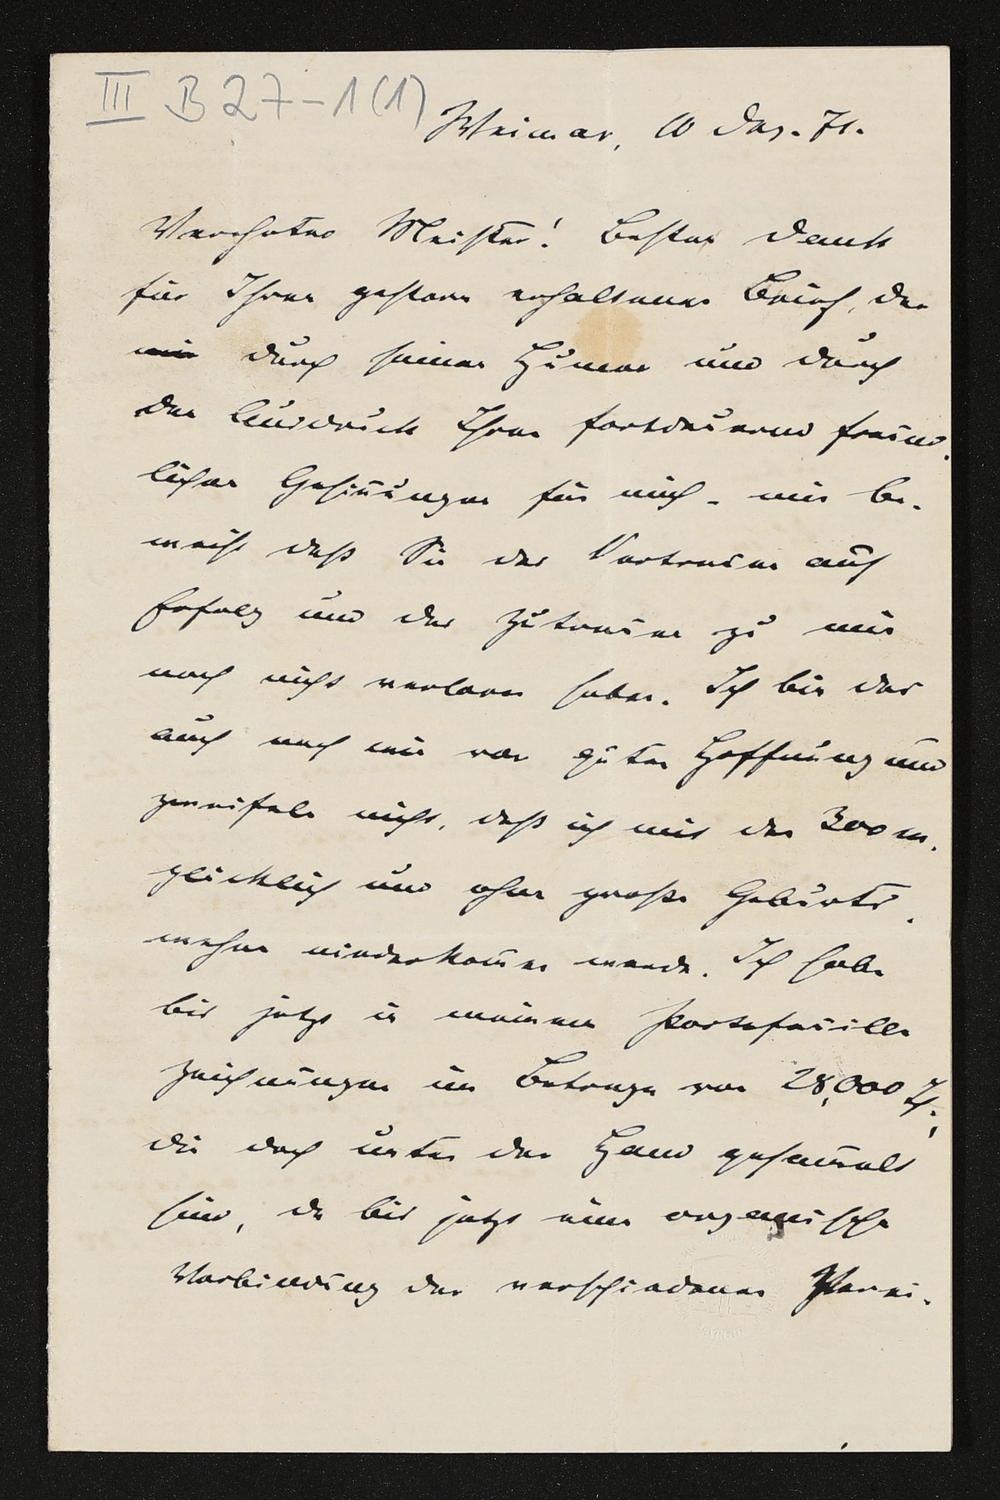 III B 27-1(1)
Weimar, 10 Dez. 71.
Verehrter Meister! Besten Dank
für Ihren gestern erhaltenen Brief, der
mir durch seinen Humor und durch
den Ausdruck Ihrer fortdauernd freund-
lichen Gesinnungen für mich - mir be-
weist daß Sie das Vertrauen auf
Erfolg und das Zutrauen zu mir
noch nicht verloren haben. Ich bin das
auch nach wie vor guter Hoffnung und
zweifele nicht, daß ich mit den 300 m.
glücklich und ohne große Geburts-
wehen niederkommen werde. Ich habe
bis jetzt in meinem Portefeuille
Zeichnungen im Betrage von 28,000 Th.,
die doch unter der Hand gesammelt
sind, da bis jetzt eine organische
Verbindung der verschiedenen Verei-